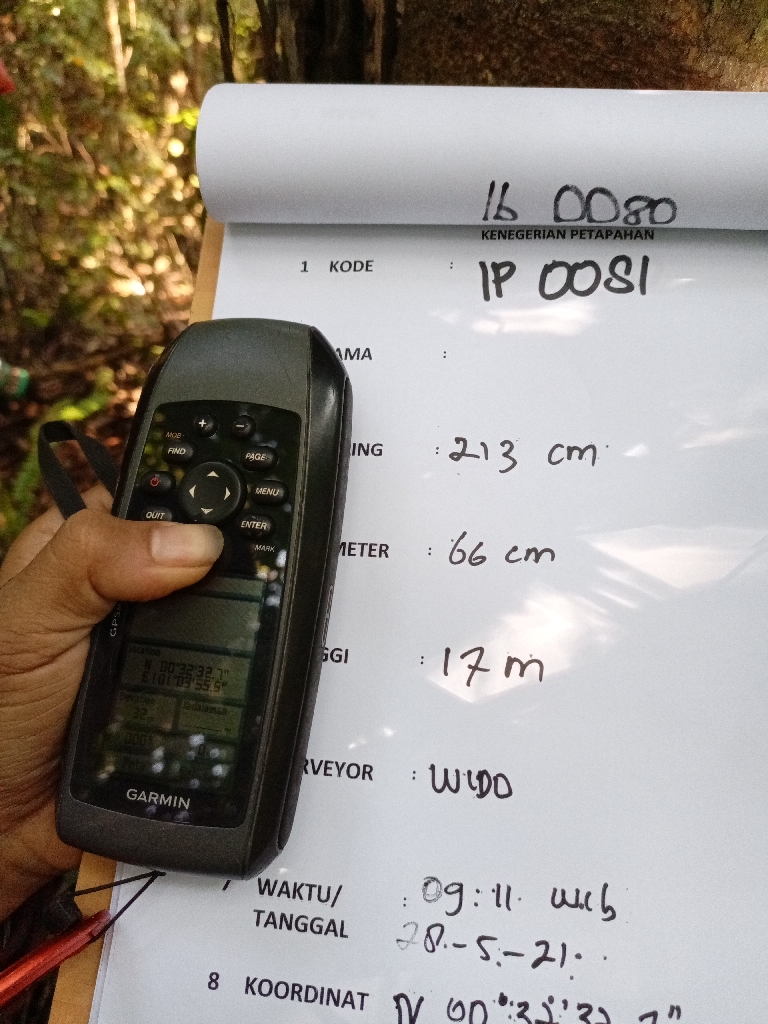 16 0080
KENEGERIAN PETAPAHAN
1 KODE : IP 0081
AMA :
ING : 213 cm
METER : 66 cm
GGI : 17 m
RVEYOR : WIDO
7 WAKTU/ : 09:11 wib
TANGGAL 28-5-21
8 KOORDINAT N 00°32'32.7"
+
-
MOB
FIND
PAGE
MENU
QUIT
ENTER
MARK
GPS
N 00°32'32.7"
E101°03'55.5"
GARMIN